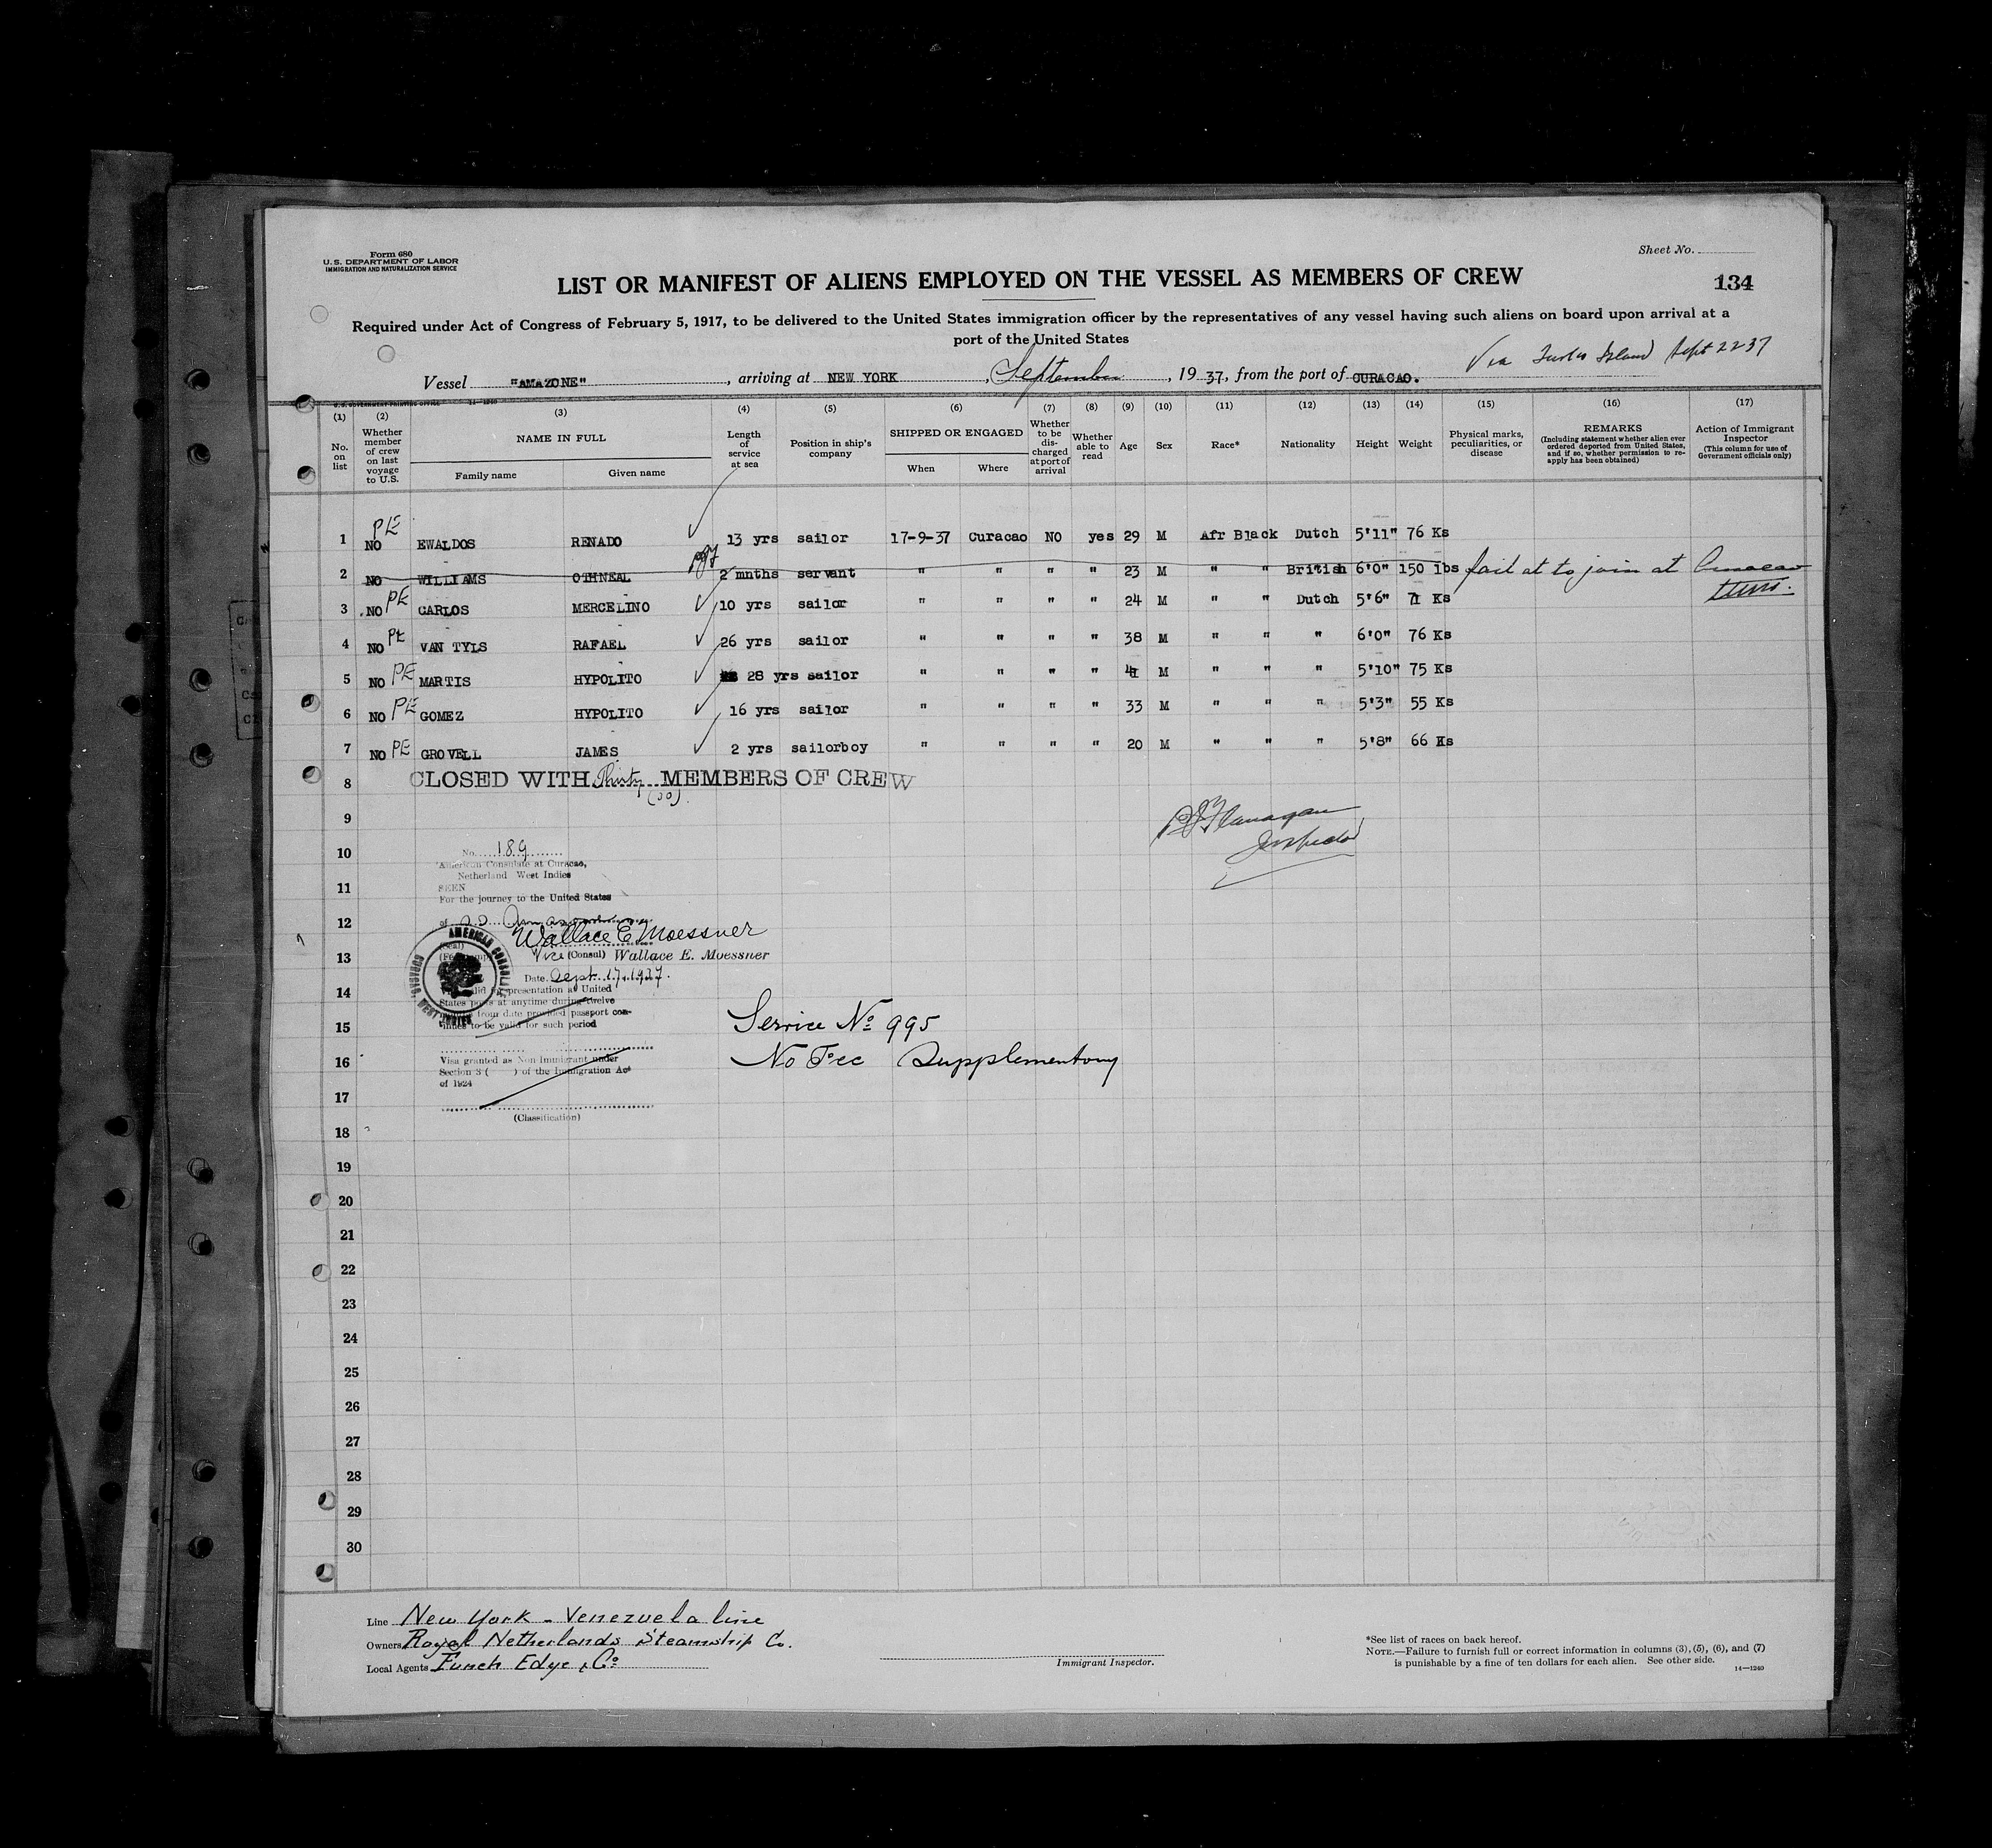 Form 680
U. S. DEPARTMENT OF LABOR
IMMIGRATION AND NATURALIZATION SERVICE
Sheet No.
LIST OR MANIFEST OF ALIENS EMPLOYED ON THE VESSEL AS MEMBERS OF CREW
134
Required under Act of Congress of February 5, 1917, to be delivered to the United States immigration officer by the representatives of any vessel having such aliens on board upon arrival at a
port of the United States
Via Turks Island Sept 22 37
Vessel "AMAZONE", arriving at NEW YORK, September, 1937, from the port of CURACAO.
U. S. GOVERNMENT PRINTING OFFICE 14—1240
(1) (2) (3) (4) (5) (6) (7) (8) (9) (10) (11) (12) (13) (14) (15) (16) (17)
No. on list
Whether member of crew on last voyage to U.S.
NAME IN FULL
Family name
Given name
Length of service at sea
Position in ship's company
SHIPPED OR ENGAGED
When
Where
Whether to be discharged at port of arrival
Whether able to read
Age
Sex
Race*
Nationality
Height
Weight
Physical marks, peculiarities, or disease
REMARKS
(Including statement whether alien ever ordered deported from United States, and if so, whether permission to reapply has been obtained)
Action of Immigrant Inspector
(This column for use of Government officials only)
1 NO PE EWALDOS RENADO 13 yrs sailor 17-9-37 Curacao NO yes 29 M Afr Black Dutch 5'11" 76 Ks
2 NO WILLIAMS OTHNEAL 2 mnths servant " " " " 23 M " " British 6'0" 150 lbs fail at to join at Curacao
3 NO PE CARLOS MERCELINO 10 yrs sailor " " " " 24 M " " Dutch 5'6" 71 Ks
4 NO PE VAN TYLS RAFAEL 26 yrs sailor " " " " 38 M " " " 6'0" 76 Ks
5 NO PE MARTIS HYPOLITO 28 yrs sailor " " " " 41 M " " " 5'10" 75 Ks
6 NO PE GOMEZ HYPOLITO 16 yrs sailor " " " " 33 M " " " 5'3" 55 Ks
7 NO PE GROVELL JAMES 2 yrs sailorboy " " " " 20 M " " " 5'8" 66 Ks
8 CLOSED WITH Thirty MEMBERS OF CREW
(30).
9
PJ Flanagan
Inspector
10
No. 189
American Consulate at Curacao,
Netherland West Indies
11
SEEN
For the journey to the United States
12
of SS Amazone
Wallace E Moessner
(Seal)
13
Vice (Consul) Wallace E. Moessner
AMERICAN CONSULATE
CURACAO, WEST INDIES
Date Sept. 17, 1937.
14
Valid for presentation at United
States ports at anytime during twelve
months from date provided passport con-
15
tinues to be valid for such period
Service No 995
16
No Fee Supplementary
Visa granted as Non Immigrant under
Section 3 ( ) of the Immigration Act
of 1924
17
(Classification)
18
19
20
21
22
23
24
25
26
27
28
29
30
Line New York - Venezuela line
Owners Royal Netherlands Steamship Co.
Local Agents Funch Edye & Co
Immigrant Inspector.
*See list of races on back hereof.
NOTE.—Failure to furnish full or correct information in columns (3), (5), (6), and (7)
is punishable by a fine of ten dollars for each alien. See other side.
14—1240